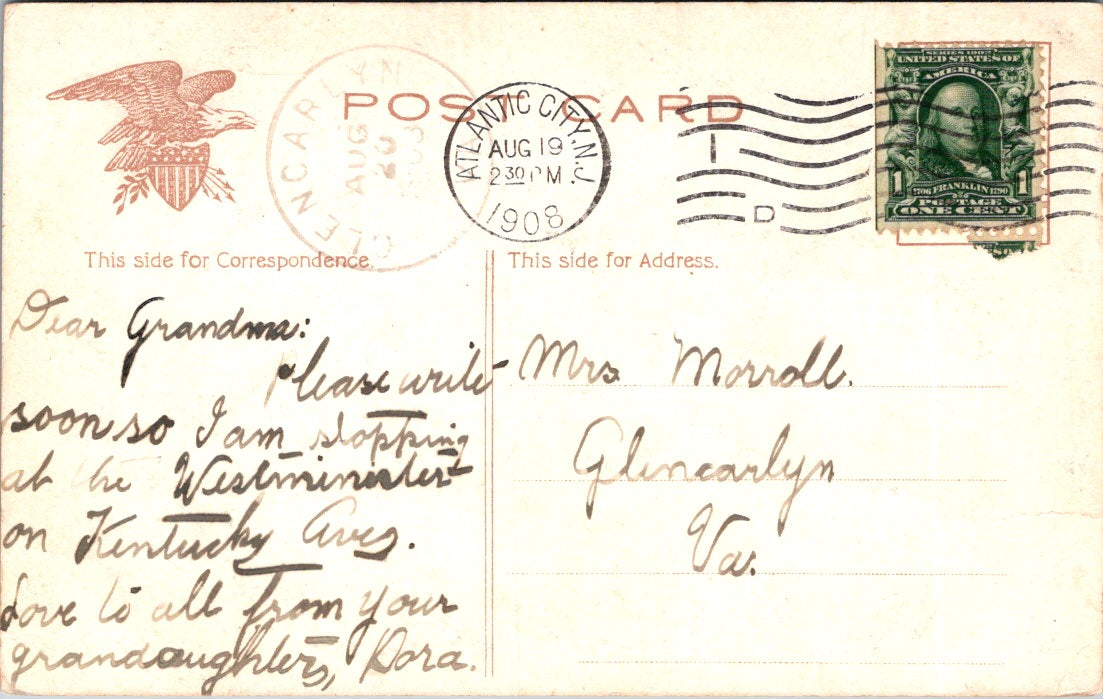 POST CARD
GLENCARLYN
AUG
20
1908
ATLANTIC CITY, N.J.
AUG 19
2 30 PM
1908
1
D
SERIES 1902
UNITED STATES OF
AMERICA
1 1706 FRANKLIN 1790 1
POSTAGE
ONE CENT
This side for Correspondence.
This side for Address.
Dear Grandma:
Please write
soon so I am stopping
at the Westminister
on Kentucky Aves.
Love to all from your
grandaughters, Dora.
Mrs Morroll.
Glencarlyn
Va.